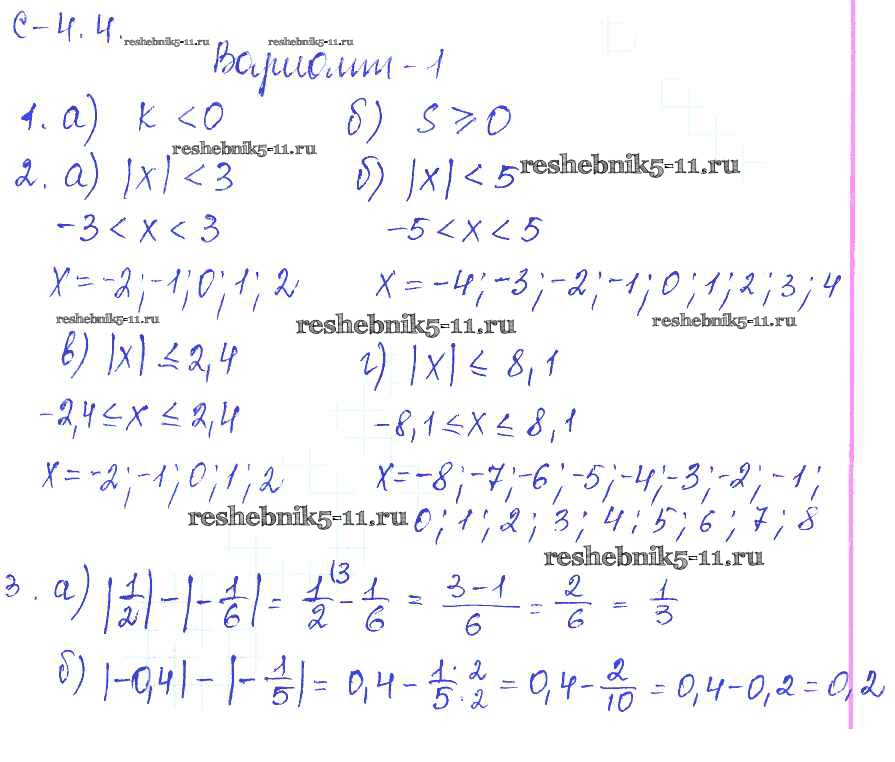 С-4.4.
reshebnik5-11.ru reshebnik5-11.ru
Вариант-1
1. а) k < 0 б) S ⩾ 0
reshebnik5-11.ru
reshebnik5-11.ru
2. а) |x| < 3 б) |x| < 5
-3 < x < 3 -5 < x < 5
x = -2; -1; 0; 1; 2 x = -4; -3; -2; -1; 0; 1; 2; 3; 4
reshebnik5-11.ru reshebnik5-11.ru reshebnik5-11.ru
в) |x| ≤ 2,4 г) |x| ≤ 8,1
-2,4 ≤ x ≤ 2,4 -8,1 ≤ x ≤ 8,1
x = -2; -1; 0; 1; 2 x = -8; -7; -6; -5; -4; -3; -2; -1;
reshebnik5-11.ru 0; 1; 2; 3; 4; 5; 6; 7; 8
reshebnik5-11.ru
3. а) |1/2| - |-1/6| = 1/2 (3 - 1/6 = 3-1/6 = 2/6 = 1/3
б) |-0,4| - |-1/5| = 0,4 - 1·2/5·2 = 0,4 - 2/10 = 0,4 - 0,2 = 0,2